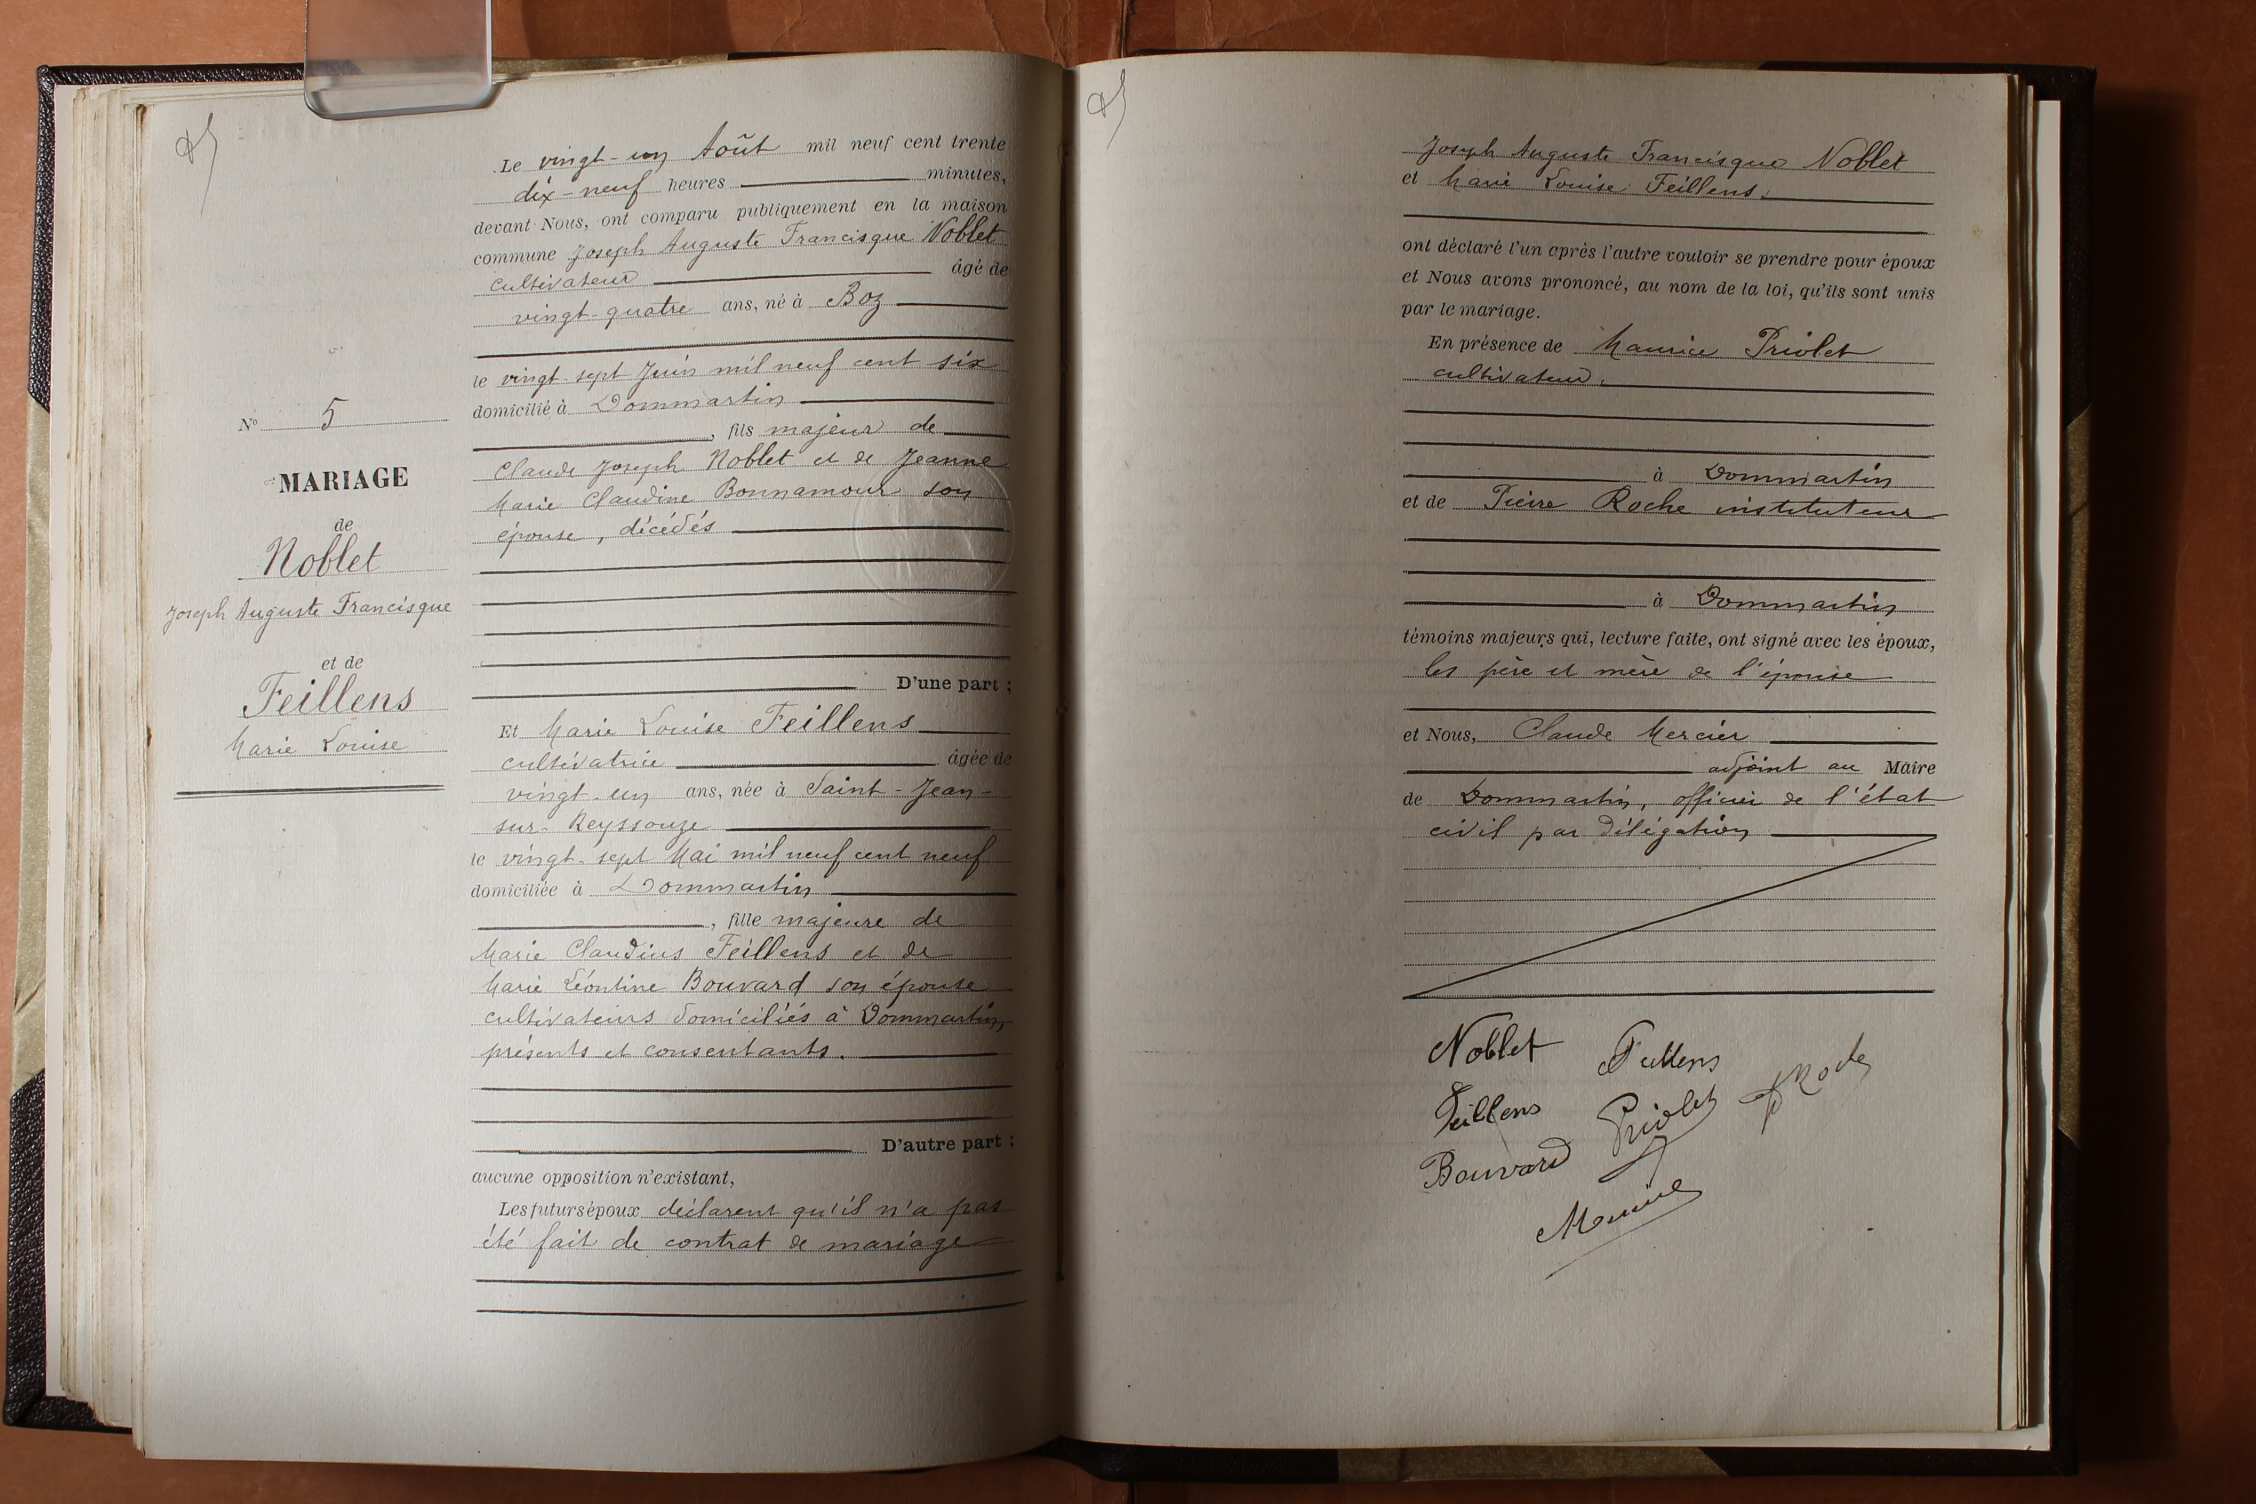 N° 5
MARIAGE
de
Noblet
Joseph Auguste Francisque
et de
Feillens
Marie Louise
Le vingt-un Août mil neuf cent trente
dix-neuf heures minutes,
devant Nous, ont comparu publiquement en la maison
commune Joseph Auguste Francisque Noblet
cultivateur âgé de
vingt-quatre ans, né à Boz
le vingt-sept Juin mil neuf cent six
domicilié à Dommartin
, fils majeur de
Claude Joseph Noblet et de Jeanne
Marie Claudine Bonnamour son
épouse, décédés
D'une part ;
Et Marie Louise Feillens
cultivatrice âgée de
vingt-un ans, née à Saint-Jean-
sur-Reyssouze
le vingt-sept Mai mil neuf cent neuf
domiciliée à Dommartin
, fille majeure de
Marie Claudius Feillens et de
Marie Léontine Bouvard son épouse
cultivateurs domiciliés à Dommartin,
présents et consentants.
D'autre part ;
aucune opposition n'existant,
Les futurs époux déclarent qu'il n'a pas
été fait de contrat de mariage
Joseph Auguste Francisque Noblet
et Marie Louise Feillens.
ont déclaré l'un après l'autre vouloir se prendre pour époux
et Nous avons prononcé, au nom de la loi, qu'ils sont unis
par le mariage.
En présence de Maurice Priolet
cultivateur,
à Dommartin
et de Pierre Roche instituteur
à Dommartin
témoins majeurs qui, lecture faite, ont signé avec les époux,
les père et mère de l'épouse
et Nous, Claude Mercier
adjoint au Maire
de Dommartin, officier de l'état
civil par délégation
Noblet Feillens
Feillens Priolet PRoche
Bouvard
Mercier